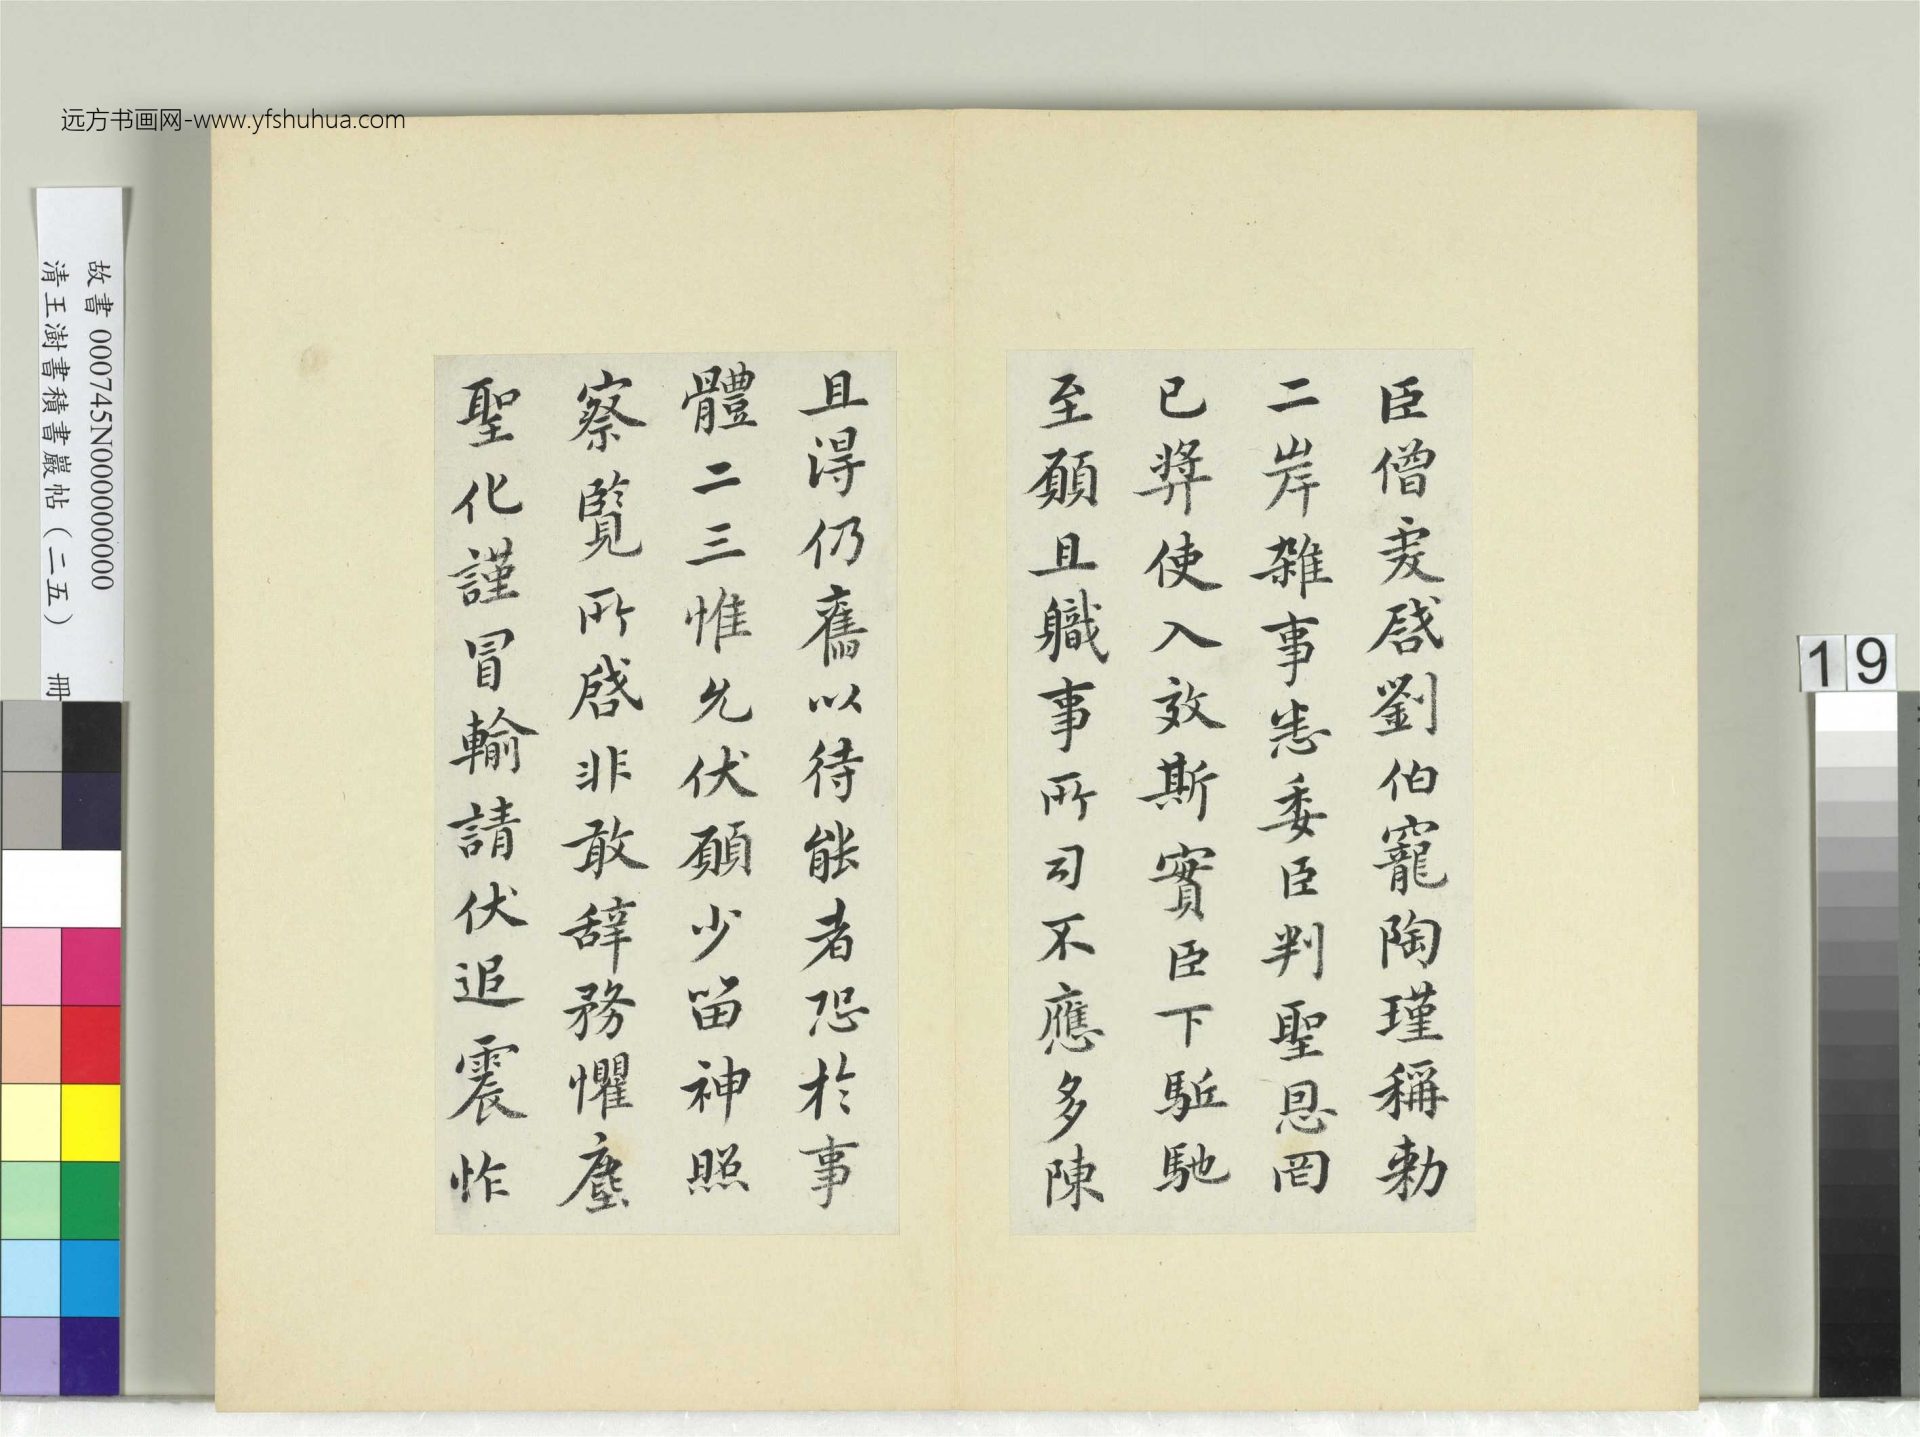 远方书画网-www.yfshuhua.com
故書 000745N000000000
清王澍書積書巖帖（二五） 冊
19
臣僧虔啓劉伯寵陶瑾稱勅
二岸雜事悉委臣判聖恩罔
已弉使入效斯實臣下駈馳
至願且職事所司不應多陳
且得仍舊以待能者恐於事
體二三惟允伏願少留神照
察覽所啓非敢辞務懼塵
聖化謹冒輸請伏追震怍